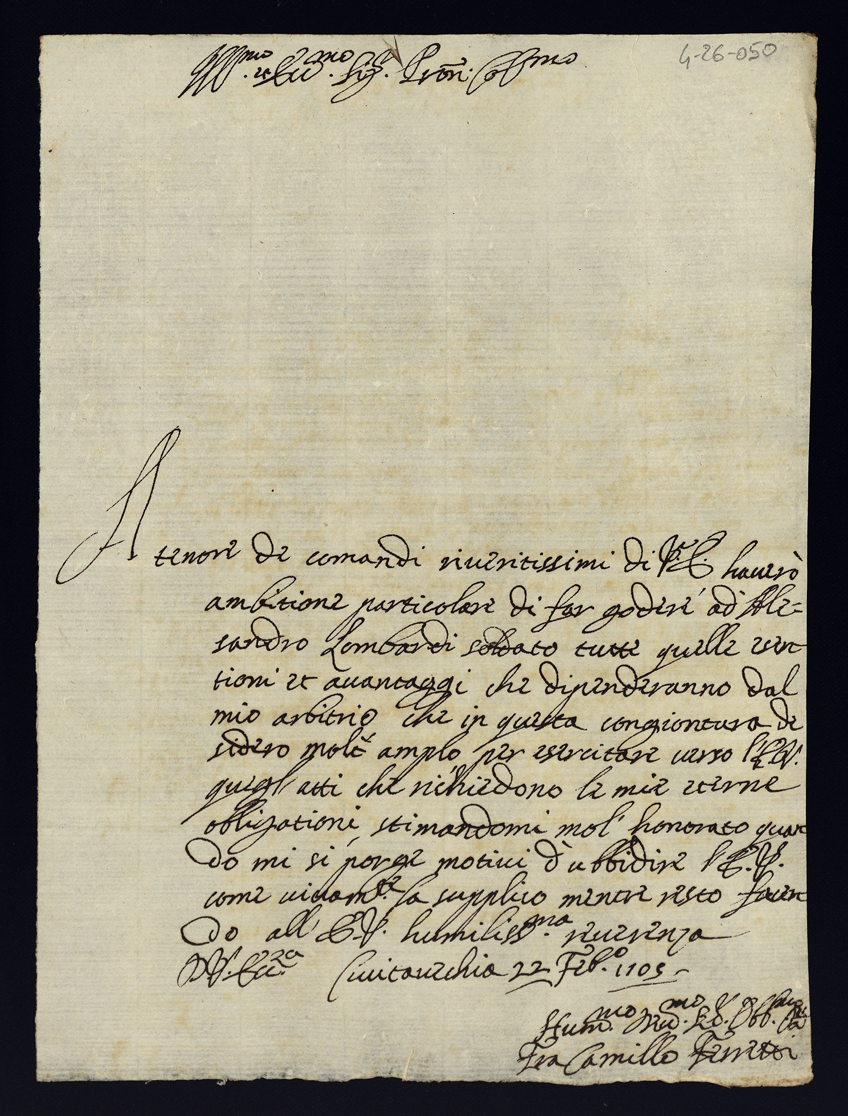 4-26-050
Ill.mo et Ecc.mo Sig.r Pron. Coll.mo
A tenore de comandi riveritissimi di V.E. haverò
ambitione particolare di far godere ad Ale=
sandro Lombardi soldato tutte quelle esen
tioni et avantaggi che dipenderanno dal
mio arbitrio che in questa congiontura de
sidero molt' amplo per esercitare verso l'E.V.
quegl' atti che richiedono le mie eterne
obligationi, stimandomi mol' honorato quan
do mi si porge motivi d'ubbidire l'E.V.
come vivam.te la supplico mentre resto facen
do all' E.V. humiliss.ma reverenza
D.V. Ecc.za Civitavechia 22 Feb.o 1705
Hum.mo Div.mo Se.r Obb.mo
Fra Camillo Ferretti